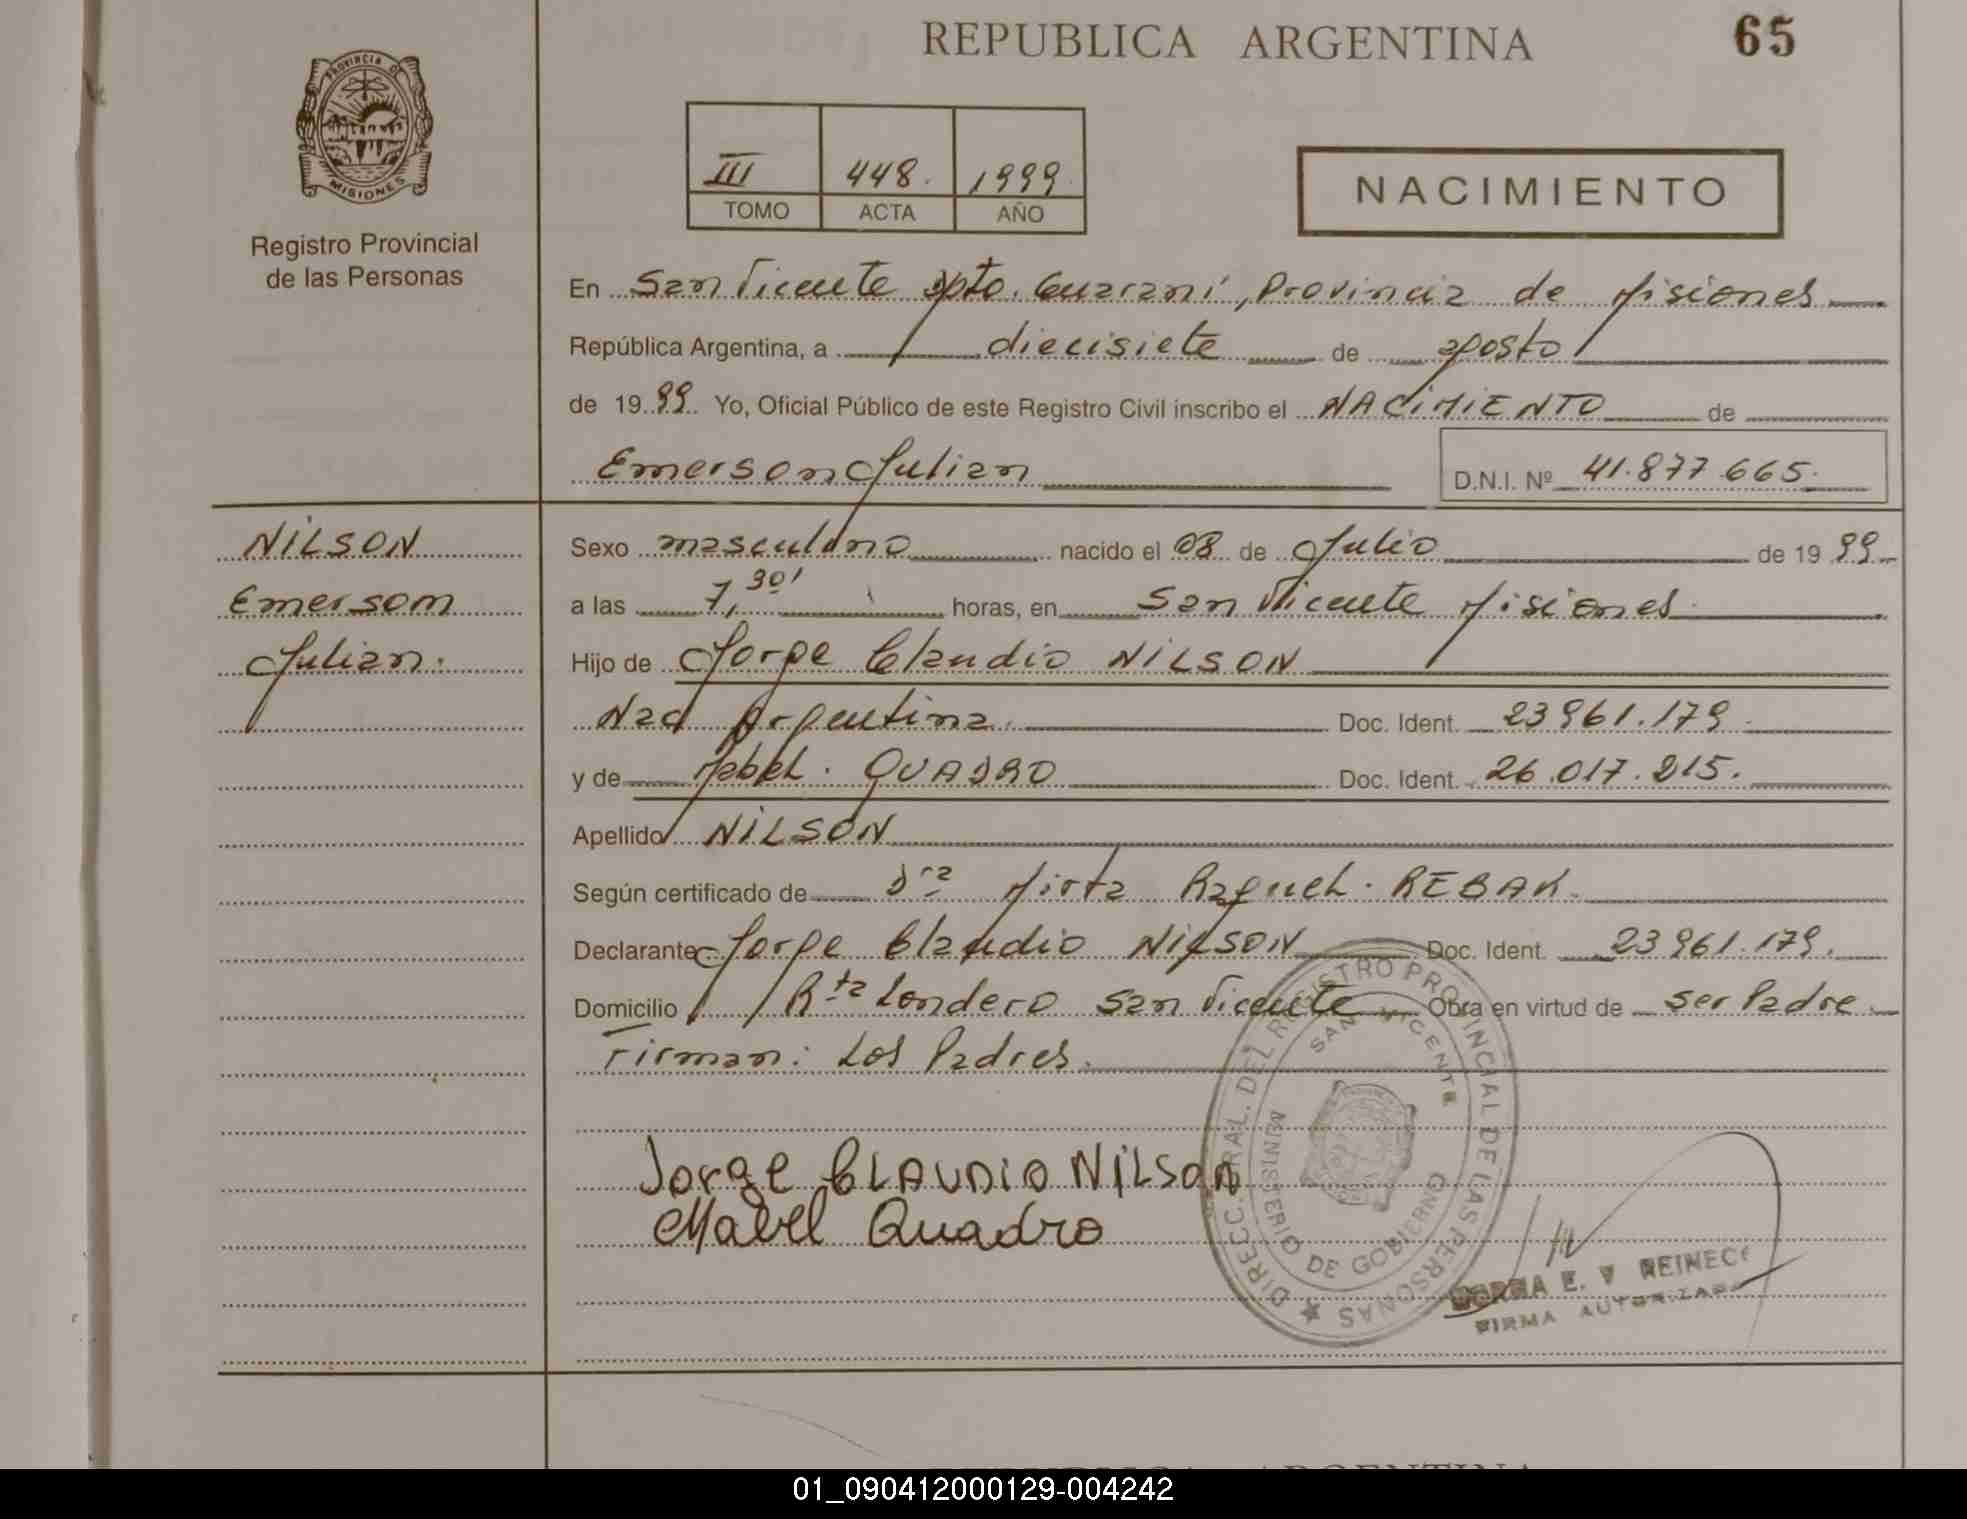 REPUBLICA ARGENTINA 65
PROVINCIA DE
MISIONES
Registro Provincial
de las Personas
III 448. 1999.
TOMO ACTA AÑO
NACIMIENTO
En San Vicente Dpto. Guaraní, Provincia de Misiones
República Argentina, a diecisiete de agosto
de 1999 Yo, Oficial Público de este Registro Civil inscribo el NACIMIENTO de
Emerson Julian D.N.I. Nº 41.877.665.
NILSON
Emersom
Julian.
Sexo masculino nacido el 08 de Julio de 1999
a las 7,30' horas, en San Vicente Misiones
Hijo de Jorge Claudio NILSON
Nac Argentina. Doc. Ident. 23961.179.
y de Mabel. QUADRO Doc. Ident. 26.017.215.
Apellido NILSON
Según certificado de Dra Mirta Raquel. REBAK.
Declarante Jorge Claudio NILSON Doc. Ident. 23961.179.
Domicilio Rta Londero San Vicente Obra en virtud de ser Padre.
Firman: Los Padres.
Jorge CLAUDIO NILSON
Mabel Quadro
DIRECC. GRAL. DEL REGISTRO PROVINCIAL DE LAS PERSONAS
SAN VICENTE
MINISTERIO DE GOBIERNO
E. V REINECK
FIRMA AUTORIZADA
REPUBLICA ARGENTINA
01_090412000129-004242